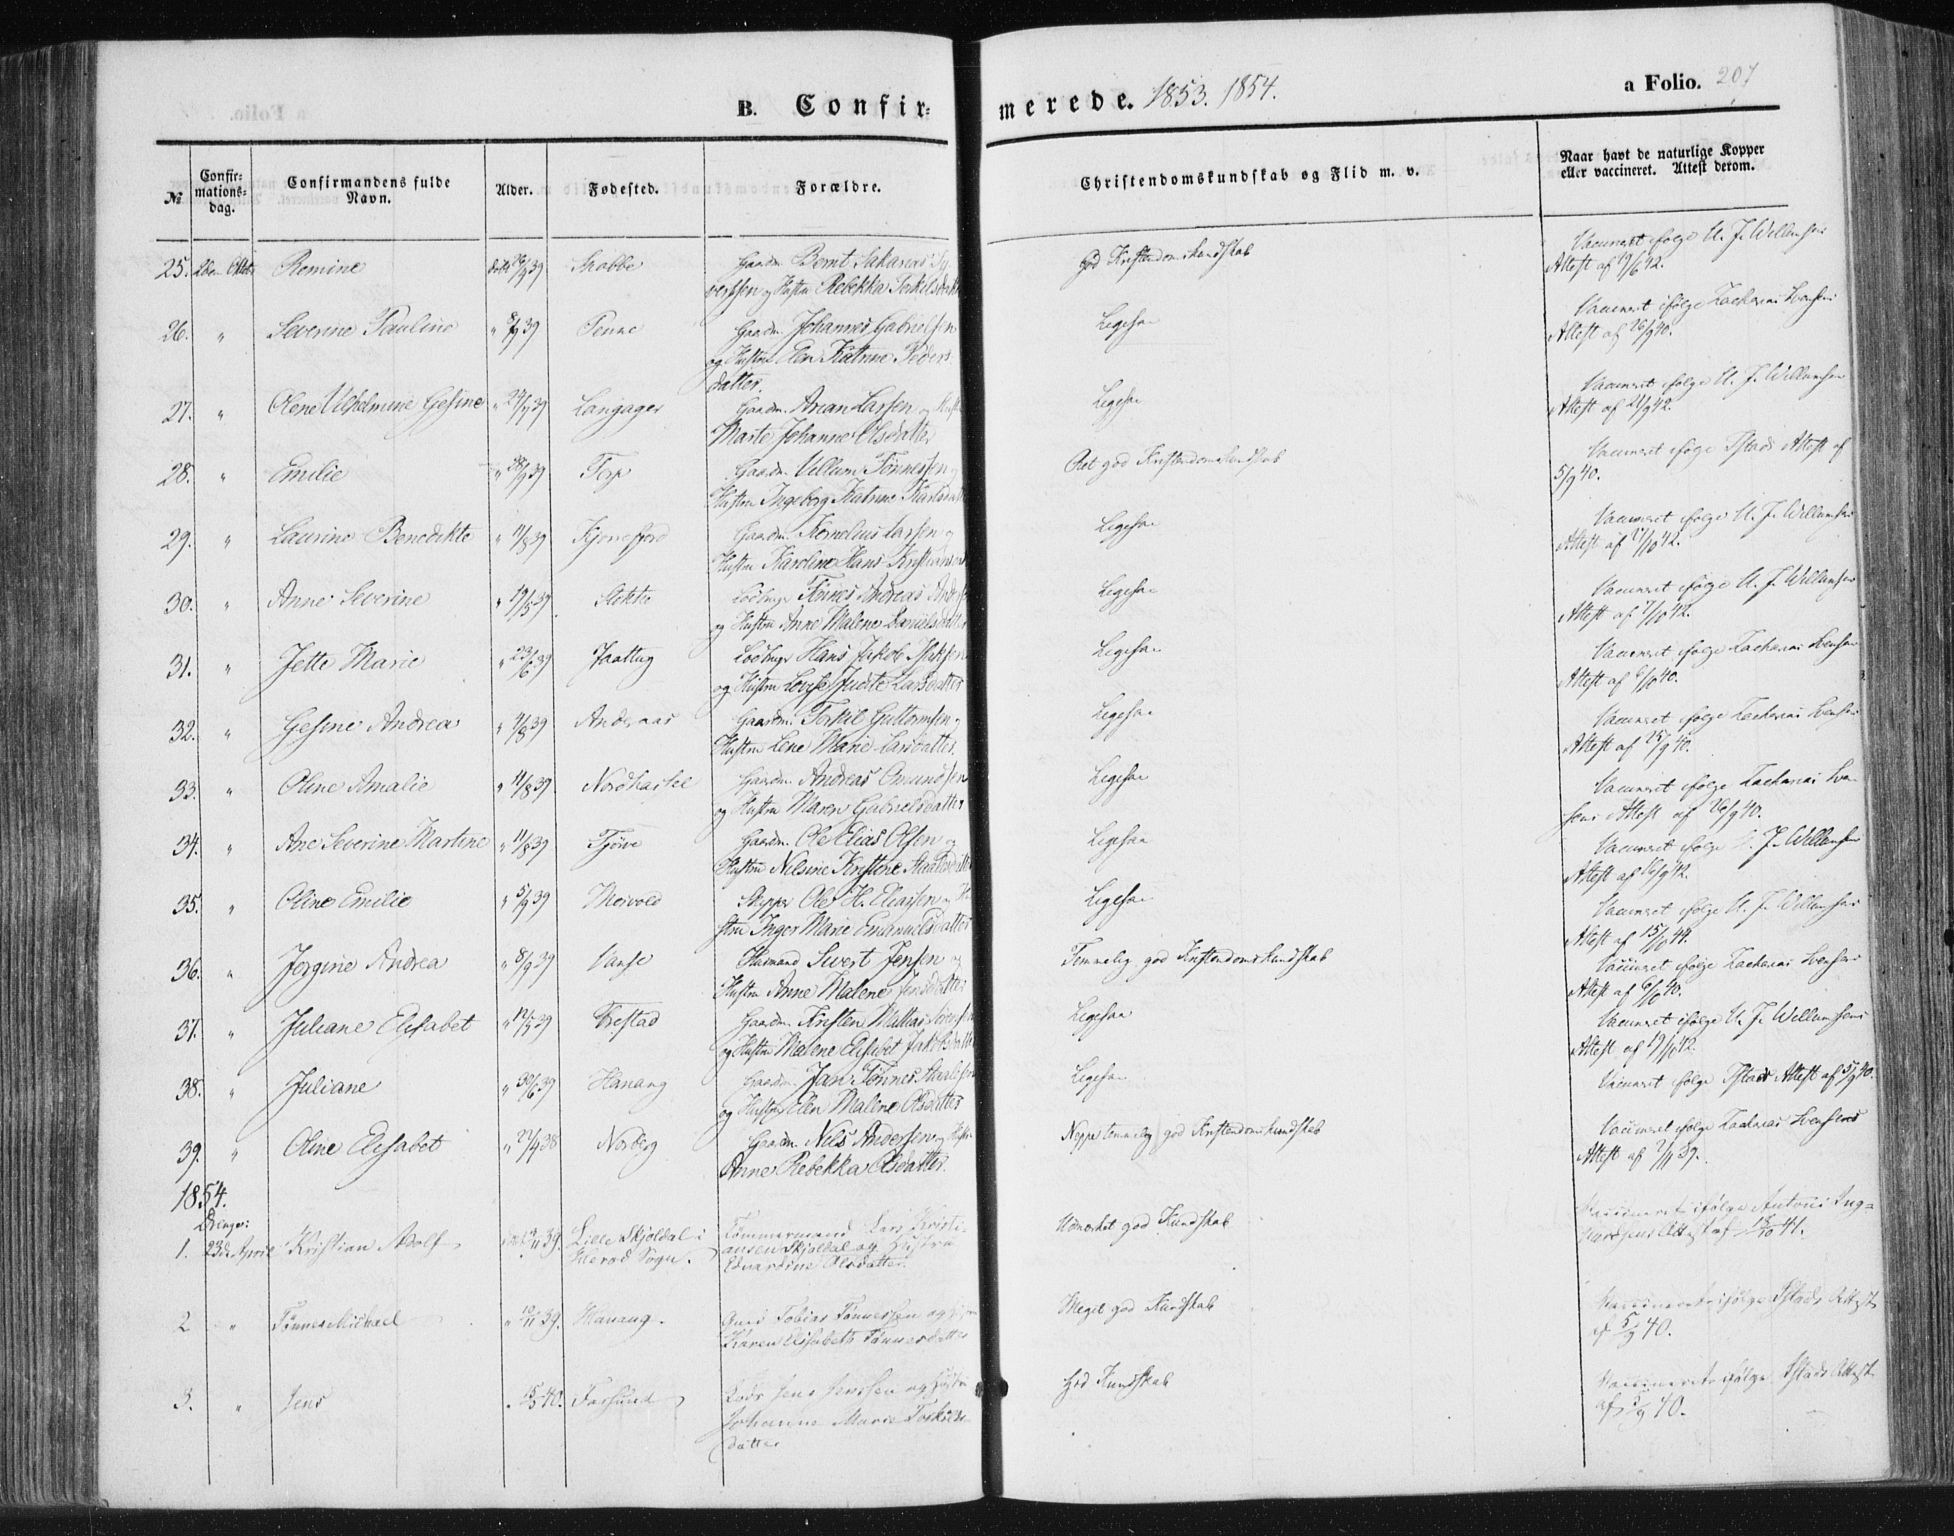 B. Confir-
merede. 1853. 1854.
a Folio. 207
№
Confir-
mations-
dag.
Confirmandens fulde
Navn.
Alder.
Fødested.
Forældre.
Christendomskundskab og Flid m. v.
Naar havt de naturlige Kopper
eller vaccineret. Attest derom.
25. 2den Octbr Romine 39 Skobbe Gaardm. Bernt Sakarias Sy-
vertsen og Hustru Rebekka Terkelsdatter
God Kristendomskundskab
Vaccineret ifølge U. J. Willumsens
Attest af 19/6 42.
26. " Severine Pauline " 39 Penne Gaardm. Johannes Gabrielsen
og Hustru Elen Katrine Peders-
datter.
Ligesaa
Vaccineret ifølge Zacharias Svensens
Attest af 26/9 40.
27. " Olene Vilhelmine Gesine " 39 Langager Gaardm. Arian Larsen og Hustru
Marte Johanne Olsdatter
Ligesaa
Vaccineret ifølge U. J. Willumsens
Attest af 21/9 42.
28. " Emilie " 39 Torp Gaardm. Villum Tønnessen og
Hustru Ingeborg Katrine Karlsdatter
Ret god Kristendomskundskab
Vaccineret ifølge Tstads Attest af
5/9 40.
29. " Laurine Benedikte " 11/8 39 Kjørrefjord Gaardm. Kornelius Larsen og
Hustru Karoline Hans Kristiansens
Ligesaa
Vaccineret ifølge U. J. Willumsens
Attest af 17/10 42.
30. " Anne Severine " 19/5 39 Stokke Losbrugr Tönnes Andreas
og Hustru Anne Malene Danielsdatter
Ligesaa
Vaccineret ifølge U. J. Willumsens
Attest af 7/10 42.
31. " Jette Marie " 23/6 39 Jaattug Losbrugr Hans Jakob Isaksen
og Hustru Lovise Judite Larsdatter
Ligesaa
Vaccineret ifølge Zacharias Svensens
Attest af 6/10 40.
32. " Gesine Andrea " 4/8 39 Anderaas Gaardm. Terkil Guttormsen og
Hustru Lene Marie Larsdatter.
Ligesaa
Vaccineret ifølge Zacharias Svensens
Attest af 25/9 40.
33. " Oline Amalie " 11/8 39 Nordhassel Gaardm. Andreas Omundsen
og Hustru Maren Gabrielsdatter
Ligesaa
Vaccineret ifølge Zacharias Sven-
sens Attest af 26/9 40.
34. " Ane Severine Martine " 11/8 39 Tjørve Gaardm. Ole Elias Olsen og
Hustru Nilsine Kristine Staalesdatter
Ligesaa
Vaccineret ifølge U. J. Willumsens
Attest af 16/9 42.
35. " Oline Emilie " 5/9 39 Meivold Skipper Ole H. Eliassen og Hu-
stru Inger Marie Emanuelsdatter
Ligesaa
Vaccineret ifølge U. J. Willumsens
Attest af 15/10 44.
36. " Jørgine Andrea " 8/9 39 Vanse Husmand Sivert Jensen og
Hustru Anne Malene Jensdatter
Temmelig god Kristendomskundskab
Vaccineret ifølge Zacharias Svensens
Attest af 6/10 40.
37. " Juliane Elisabet " 12/5 39 Frestad Gaardm. Kristen Mattias Svensen
og Hustru Malene Elisabet Jakobsdatter
Ligesaa
Vaccineret ifølge U. J. Willumsens
Attest af 19/10 42.
38. " Juliane " 30/6 39 Hanang Gaardm. Jan Tönnes Staalesen
og Hustru Elen Malene Olsdatter
Ligesaa
Vaccineret ifølge Tstads Attest af 5/9 40.
39. " Oline Elisabet " 38 Norberg Gaardm. Nils Andersen og Hustru
Anne Rebekka Olsdatter.
Neppe temmelig god Kristendomskundskab
Vaccineret ifølge Zacharias Svensens
Attest af 7/11 39.
1854.
Drenge:
1. 23de April Kristian Adolf 39. Lille Skjoldal i
Herod Sogn. Tømmermand Lars Kristi-
ansen Skjoldal og Hustru
Edvardine Olsdatter.
Udmerket god Kundskab
Vaccineret ifølge Antoni Ing-
Attest af 18/10 41.
2 " Tønnes Michael " 10/11 39. Hanang. Tobias Tønnessen og Hustru
Karen Elisabeth Tønnesdatter
Meget god Kundskab
Vaccineret ifølge Tstads Attest
af 5/9 40.
3. " Jens " 40. Farsund Jens Jenssen og Hustru
Johanne Marie Terkels-
datter
God Kundskab
Vaccineret ifølge Tstads Attest
af 5/9 40.